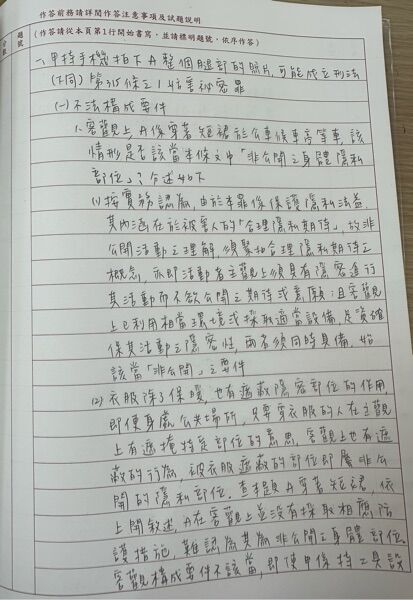 作答前務請詳閱作答注意事項及試題說明
題號
(作答請從本頁第1行開始書寫,並請標明題號,依序作答)
一、甲持手機拍下A整個腿部的照片,可能成立刑法
(下同)第315條之1妨害祕密罪
(一)不法構成要件
1.客觀上,A係穿著短裙於公車候車亭等車,該
情形是否該當本條文中「非公開之身體隱私
部位」?分述如下
(1)按實務認為,由於本罪係保護隱私法益,
其內涵在於被害人的「合理隱私期待」,故非
公開活動之理解,須緊扣合理隱私期待之
概念,亦即活動者主觀上須具有隱密進行
其活動而不欲公開之期待或意願;且客觀
上已利用相當之環境或採取適當設備,足資確
保其活動之隱密性,兩者須同時具備,始
該當「非公開」之要件
(2)衣服除了保暖,也有遮蔽隱密部位的作用
即便身處公共場所,只要穿衣服的人在主觀
上有遮掩特定部位的意思,客觀上也有遮
蔽的行為,被衣服遮蔽的部位即屬非公
開的隱私部位。查本題A穿著短裙,依
上開敘述,A在客觀上並沒有採取相應防
護措施,難認為其為非公開之身體部位
客觀構成要件不該當,即便甲係持工具設